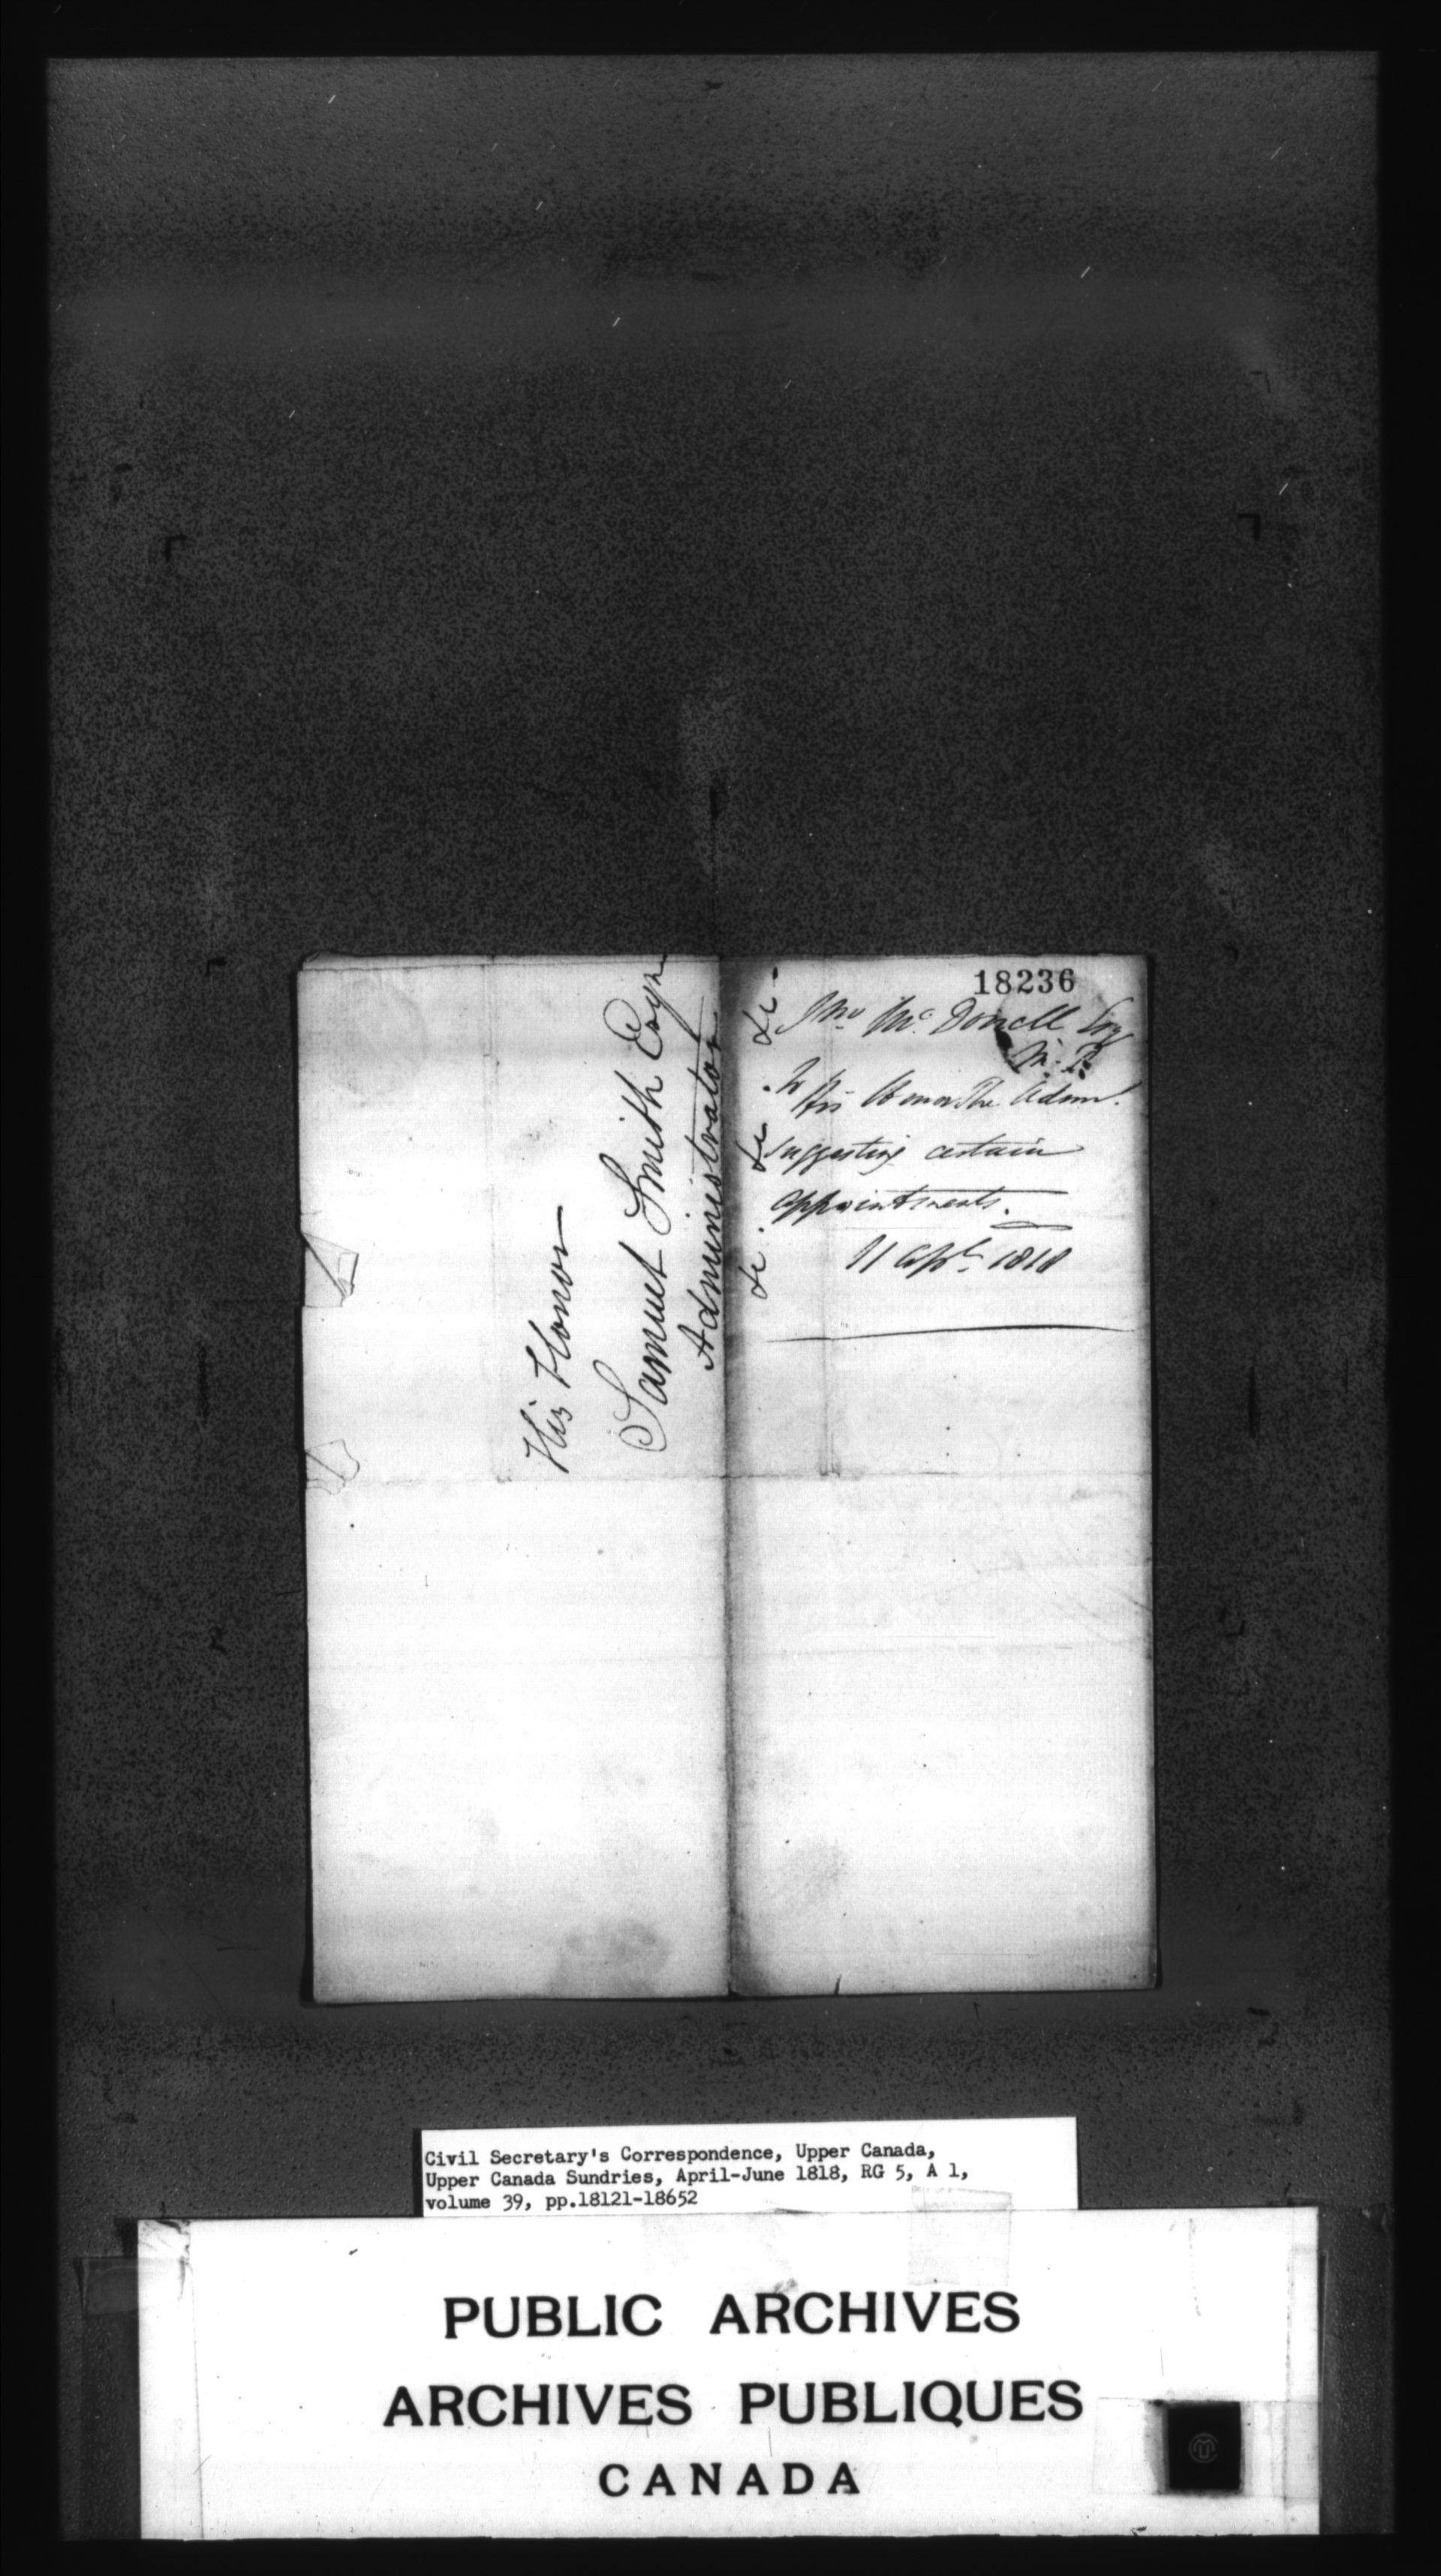 His Honor
Samuel Smith Esqr
Administrator
&c - &c &c
18236
Jno McDonell Esq
M. P.
To
His Honor The Admr.
Suggesting certain
appointments.
11 Apl. 1818
Civil Secretary's Correspondence, Upper Canada,
Upper Canada Sundries, April-June 1818, RG 5, A 1,
volume 39, pp.18121-18652
PUBLIC ARCHIVES
ARCHIVES PUBLIQUES
CANADA